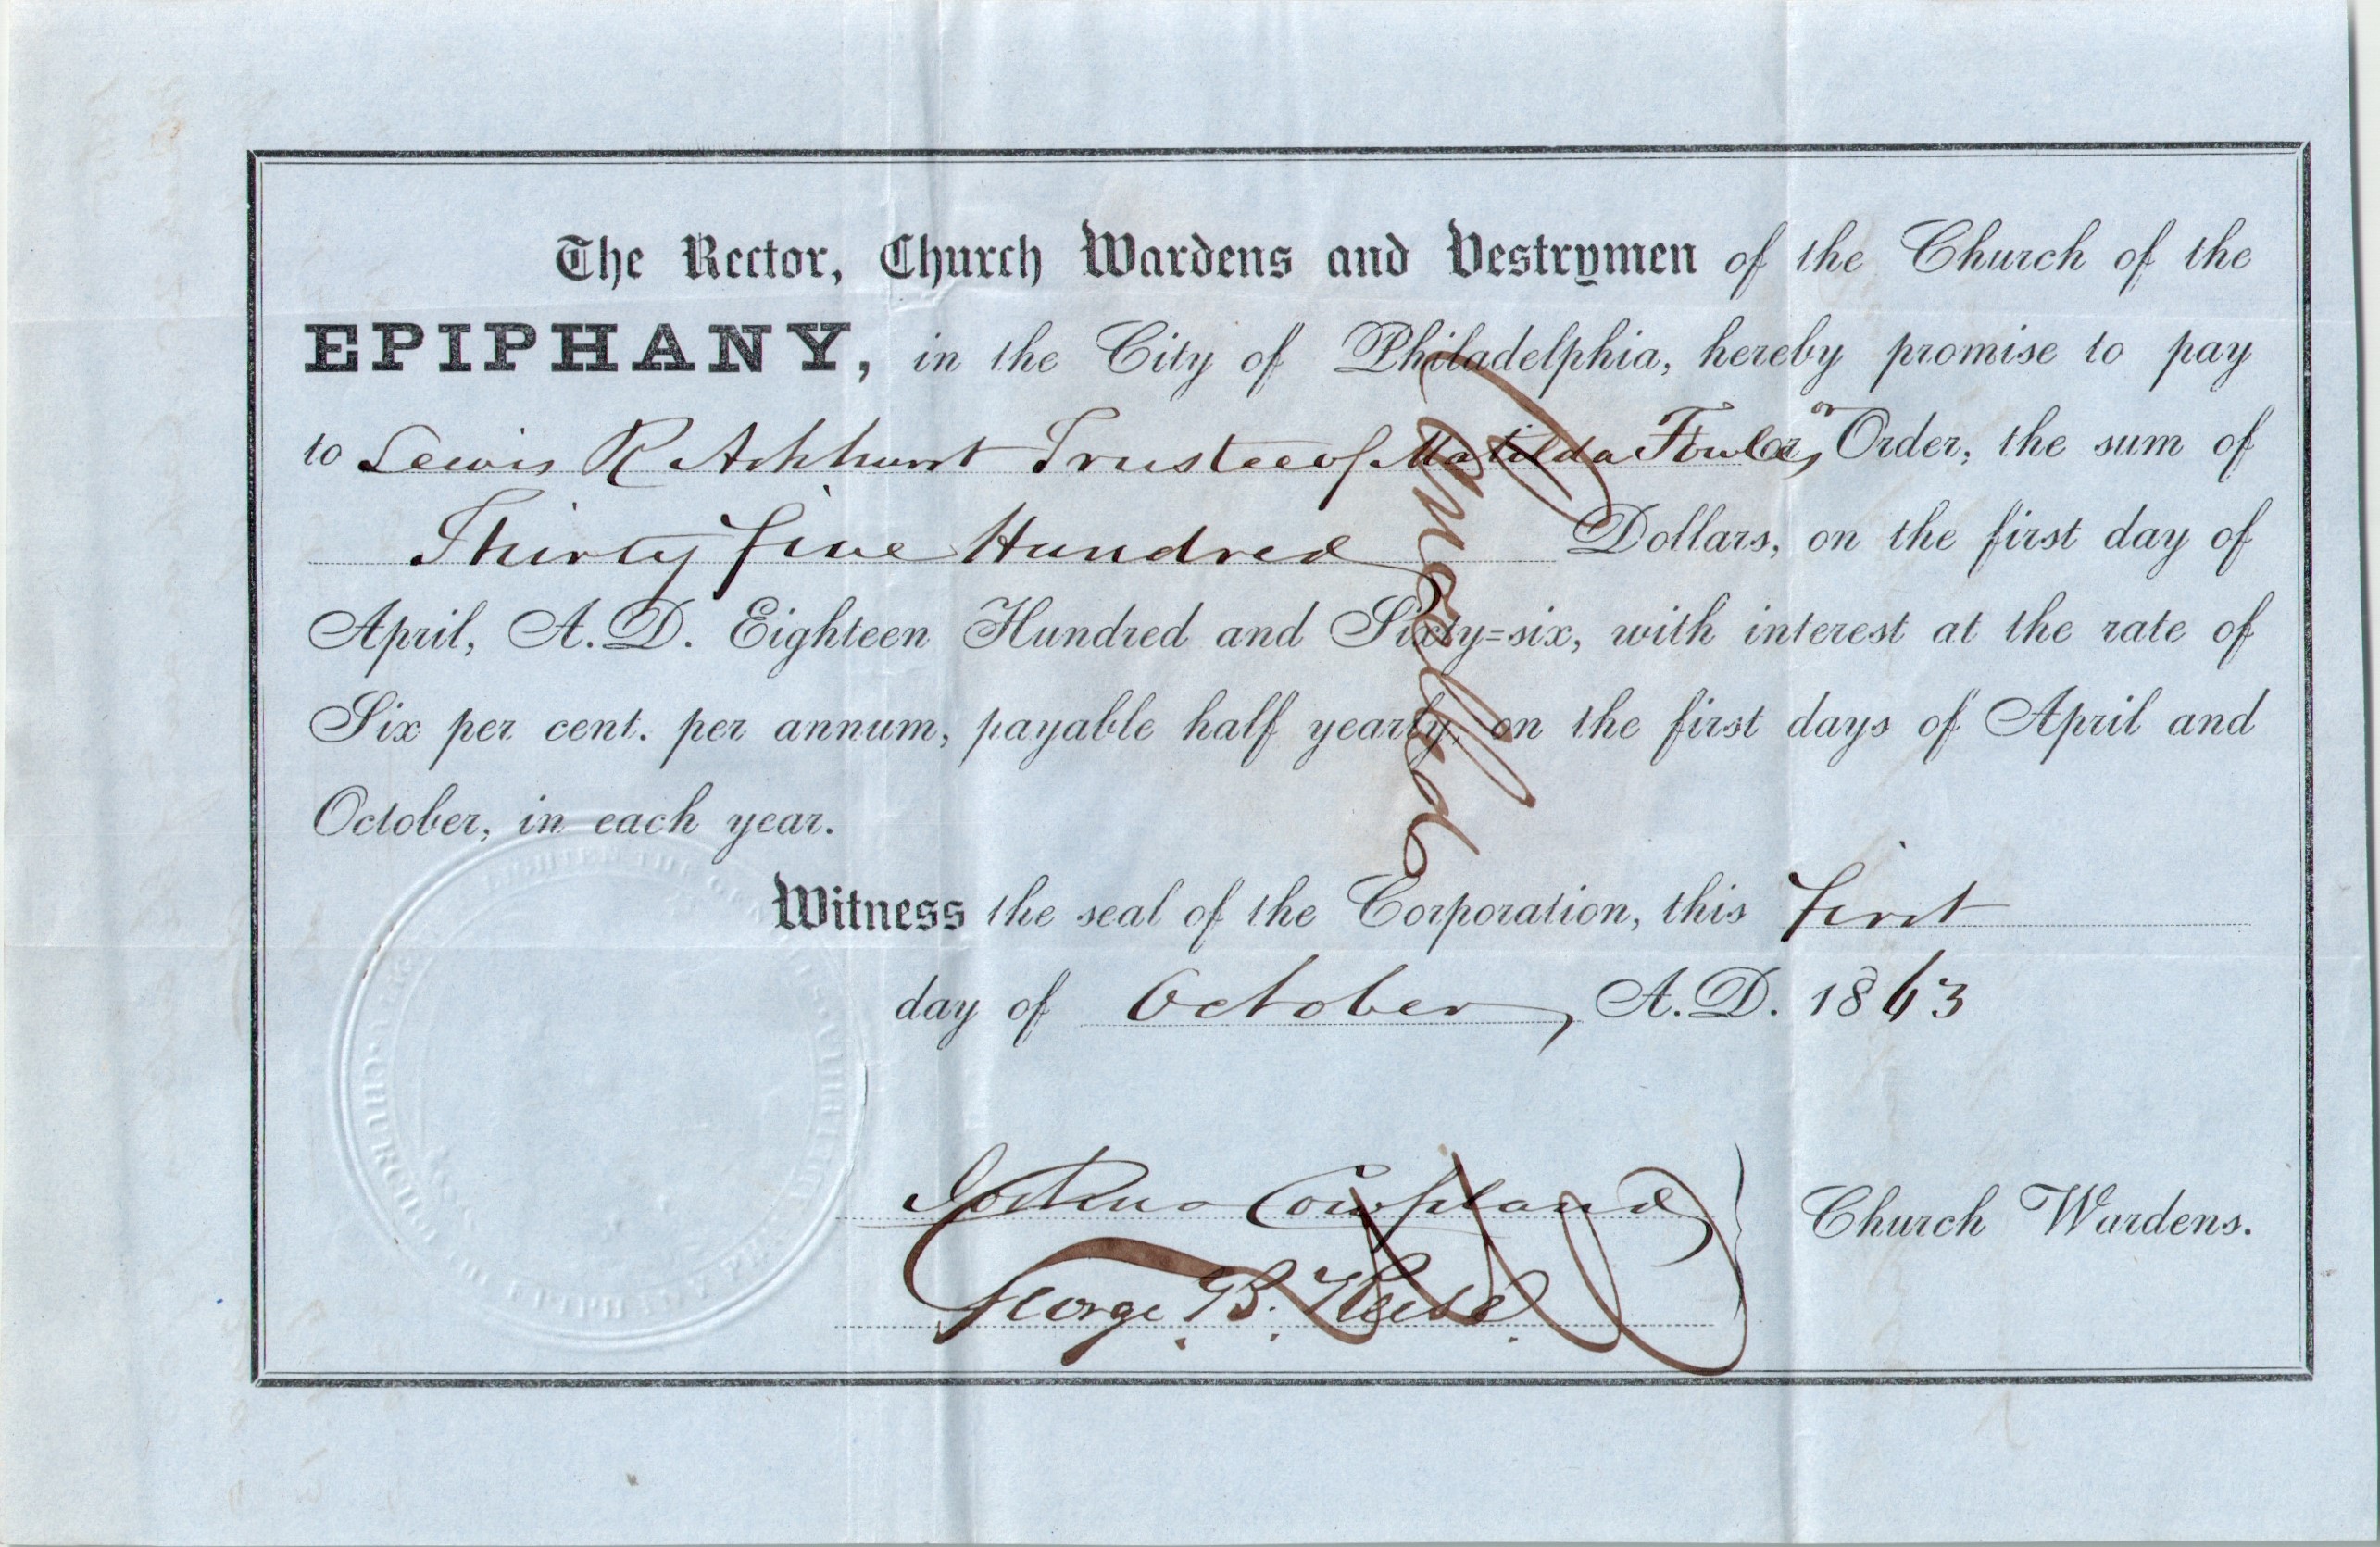 The Rector, Church Wardens and Vestrymen of the Church of the
EPIPHANY, in the City of Philadelphia, hereby promise to pay
to Lewis R Ashhurst Trustee of Matilda Fowler, or Order, the sum of
Thirty five Hundred Dollars, on the first day of
April, A. D. Eighteen Hundred and Sixty=six, with interest at the rate of
Six per cent. per annum, payable half yearly, on the first days of April and
October, in each year.
Cancelled
Witness the seal of the Corporation, this first
day of October, A. D. 1863
CHURCH OF THE EPIPHANY
Cowpland
George B. Church Wardens.